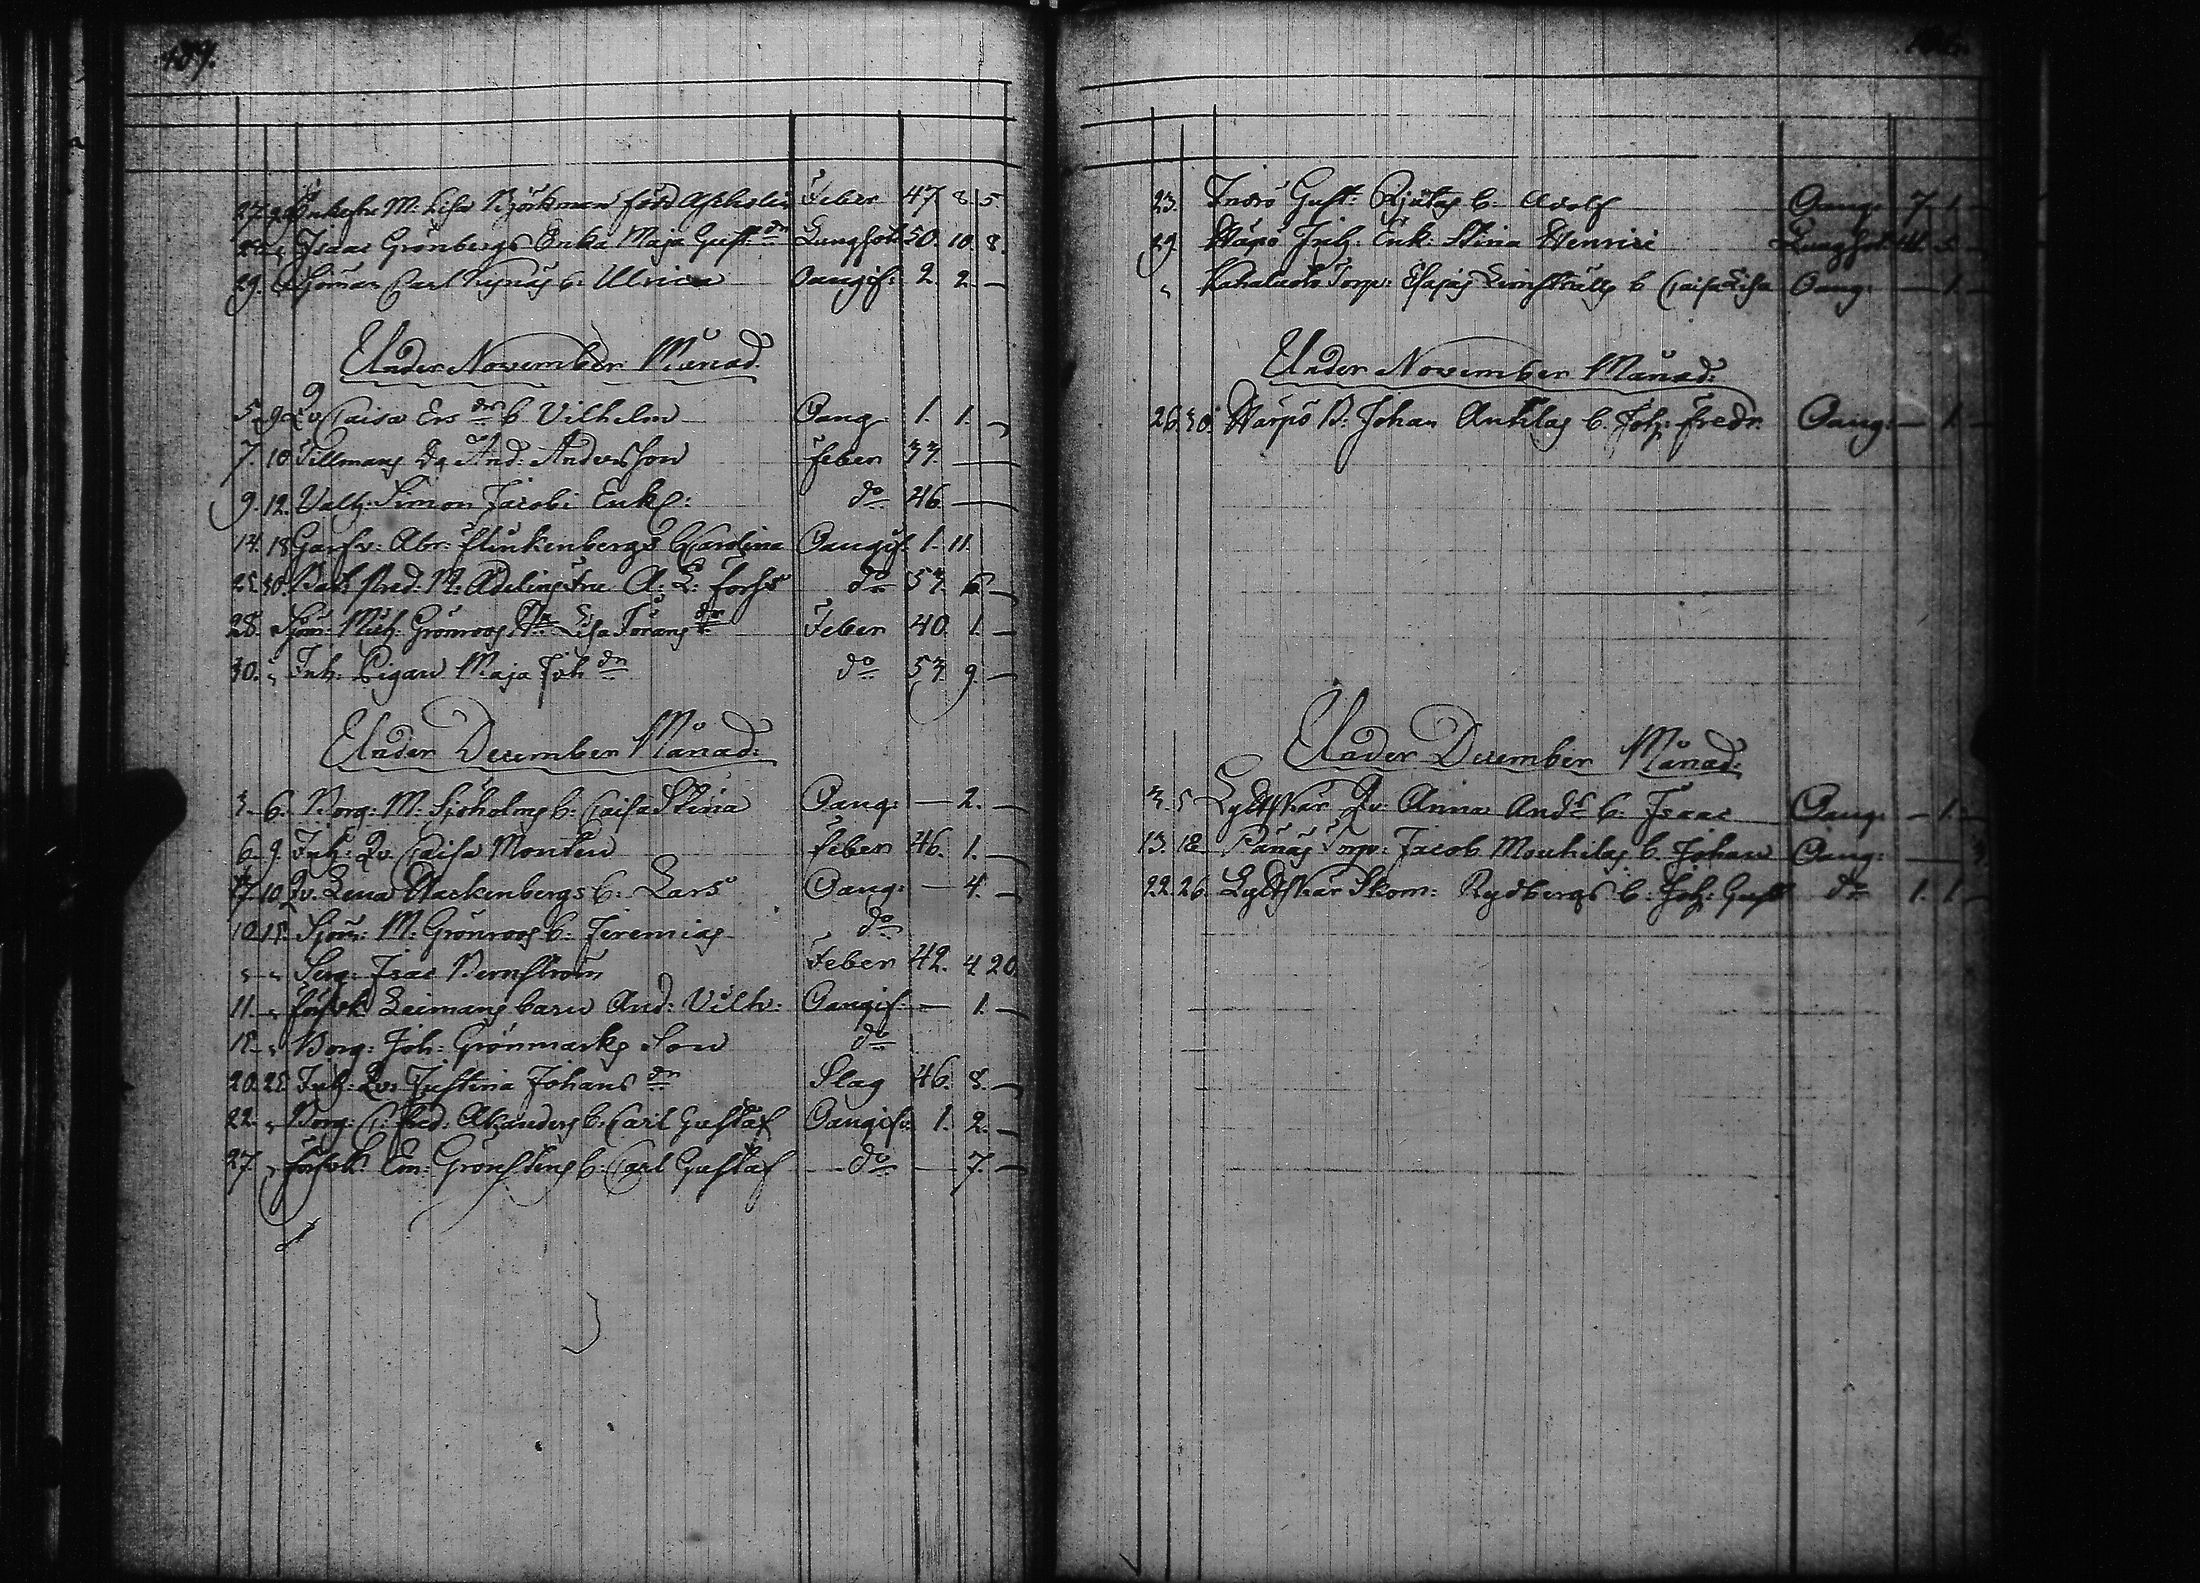 489.
27. 29. Enkefru M. Lisa Björkman född Feber 47 8 5
28. " Isaac Grönbergs Enka Maja Gust. dr Lungsot 50. 10. 8.
29. Sjöman Carl b. Ulrica Oangif. 2. 2. —
Under November Månad.
5. 9. Qv. Caisa Ers dr b. Vilhelm Oang. 1. 1. —
7. 10. Tillmans Dr. And. Andersson feber 33. —
9. 12. Simon Jacobi Enkl: do 46 —
14. 18. Garfv. Abr. flinkenbergs b. Carolina Oangif. 1. 11.
25. 30. A. L. forss do 53. 6. —
28. " Sjöm. Mich. Grönroos Lisa dr Feber 40. 1. —
30. " Inh. Pigan Maja Joh dr do 53 9. —
Under December Månad:
3. 6. Borg. M. Sjöholms b. Caisa Stina Oang: — 2. —
6. 9. Inh. Qv. Caisa Monten feber 46. 1. —
7. 10. Qv. Lena Stackenbergs b. Lars Oang: — 4. —
10. 15. Sjöm. M. Grönroos b. Jeremias do
" " Serg. Isac Bernström Feber 42. 4 20.
11. " Leimans barn And. Vilh. Oangif. — 1. —
15. " Borg. Joh. Grönmarks Son do
20. 25. Inh. Qv. Justina Johans dr Slag 46. 8. —
22. " Borg. C. Fred. b. Carl Gustaf Oangif. 1. 2. —
27. " Em. Grönstens b. Carl Gustaf — do — 7. —
23. Gust. b. Adolf Oang. 7. 1. —
29. Harpö Inh. Enk. Stina Henrici Lungsot
" Torp: Esajas b Caisa Lisa Oang. — 1. —
Under November Månad:
26. 30. Harpö B. Johan Anttilas b. Joh. fredr. Oang: — 1. —
Under December Månad:
3. 5. Qv. Anna And. b. Isaac Oang. — 1. —
13. 18. Torp: Jacob b. Johan Oang: — 3.
22. 26. Skom. Rydbergs b. Joh. Gust do 1. 1 —